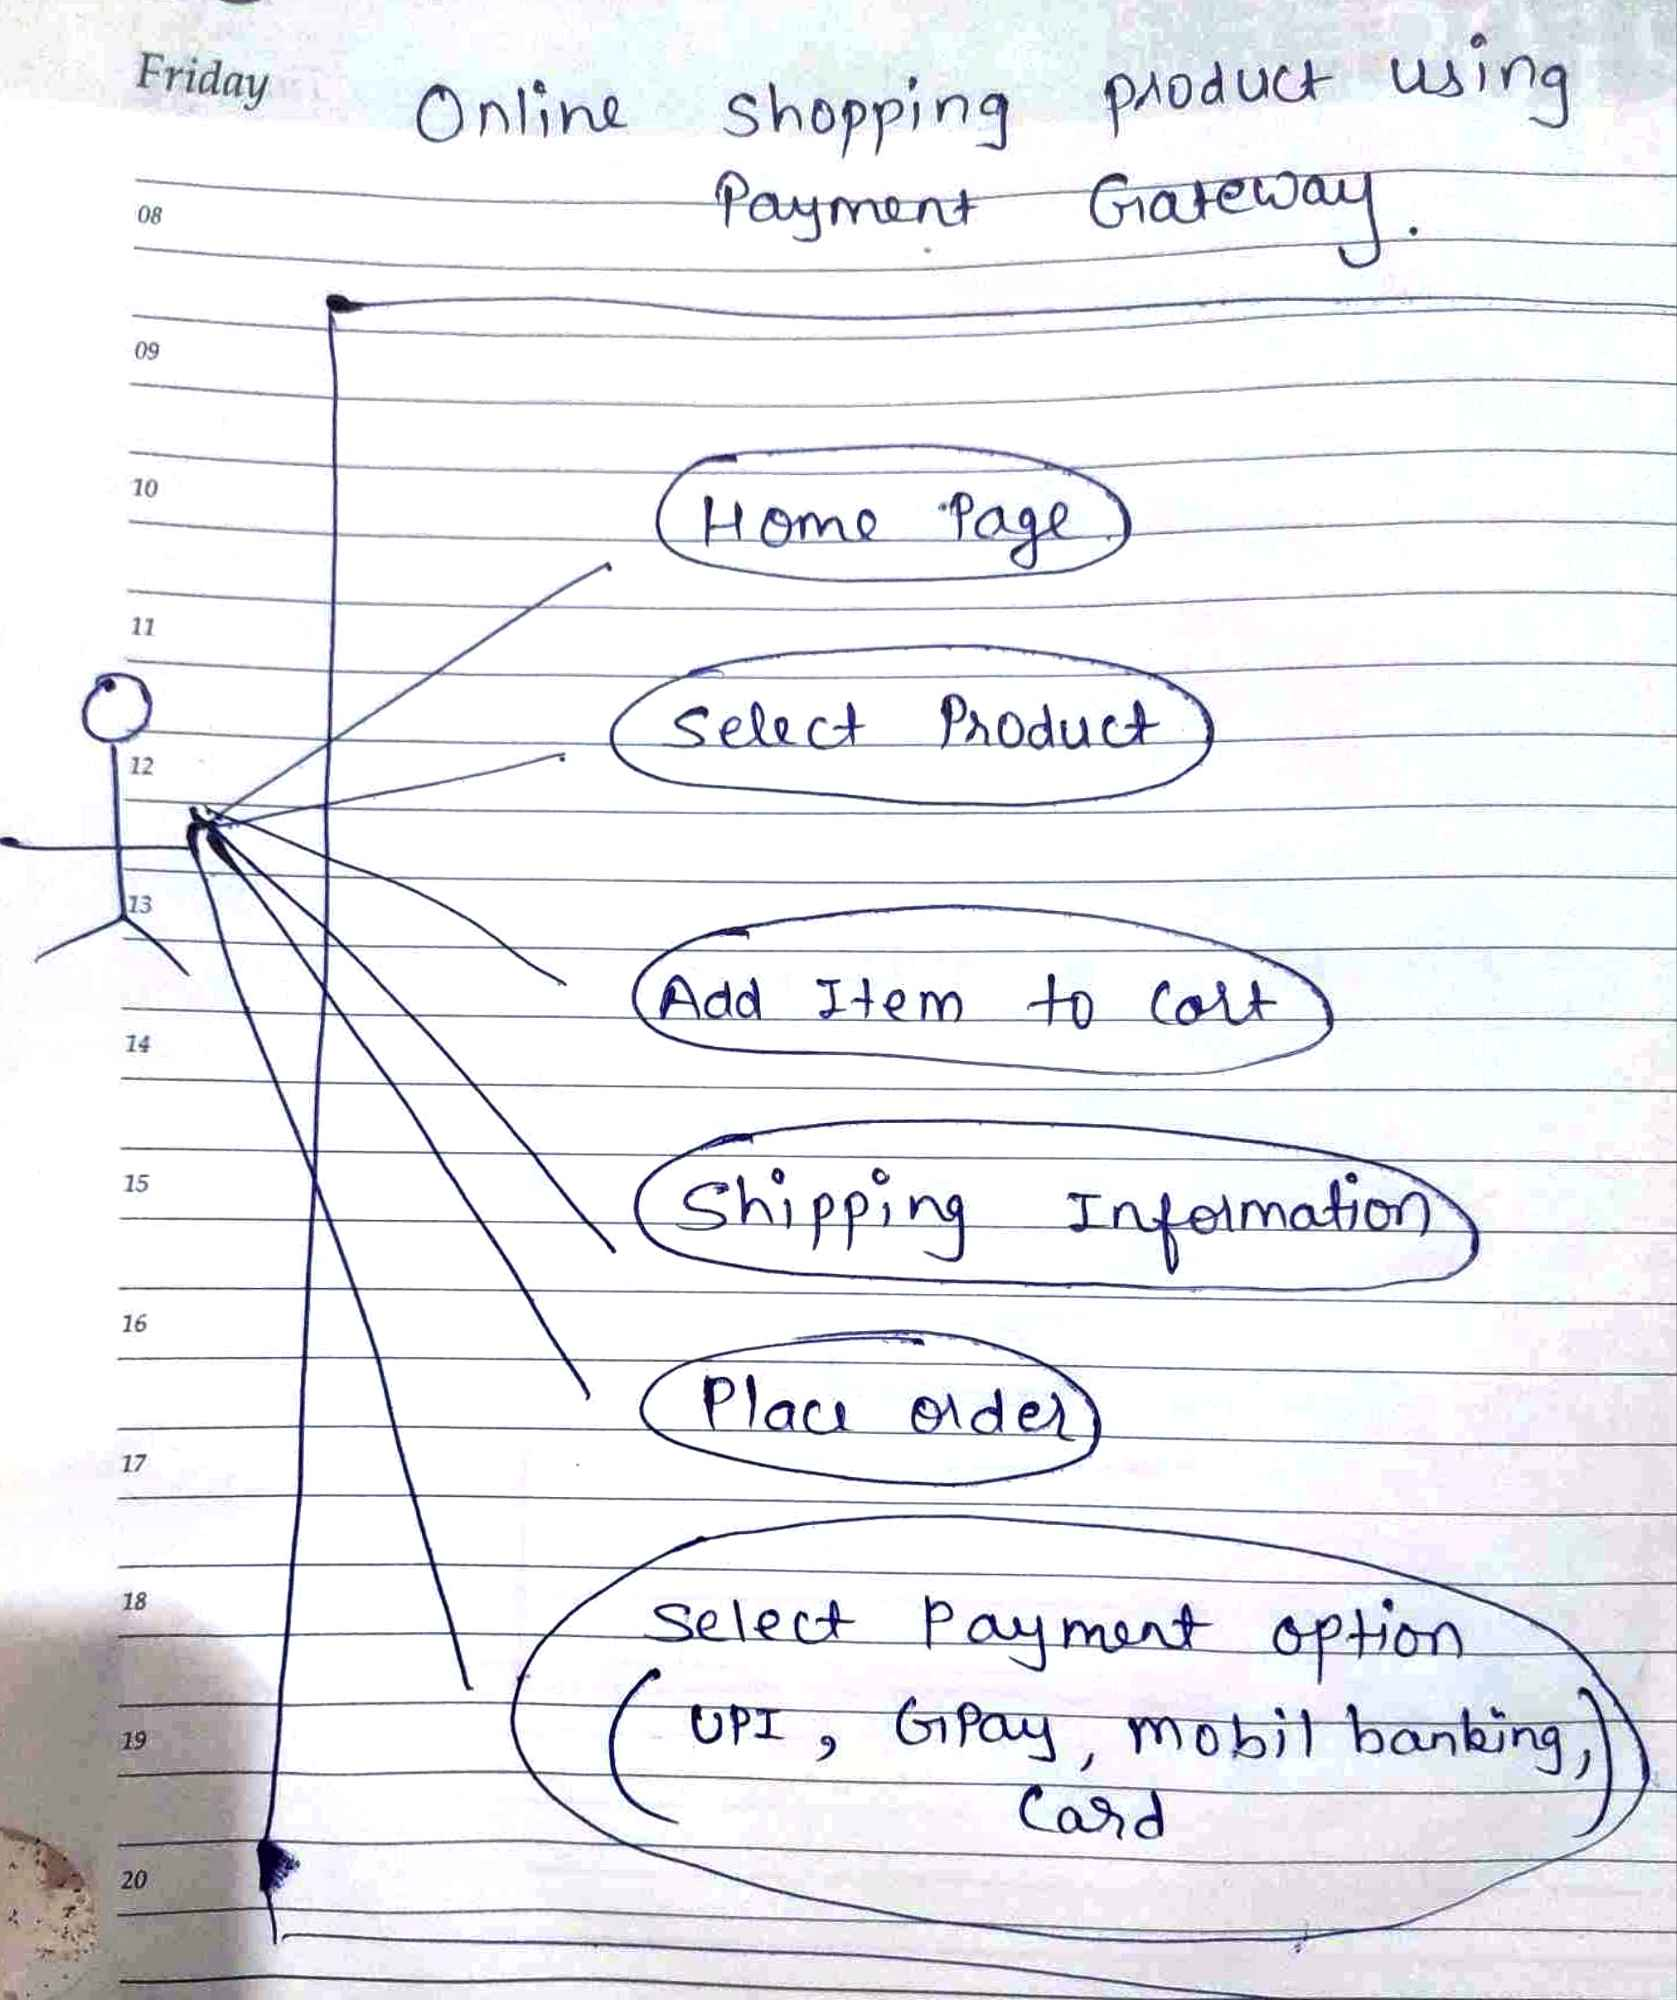 Friday
Online shopping product using
Payment Gateway.
08
09
10
Home Page
11
Select Product
12
13
Add Item to Cart
14
15
Shipping Information
16
Place order
17
18
Select Payment option
(UPI, GPay, mobil banking,)
19
Card
20